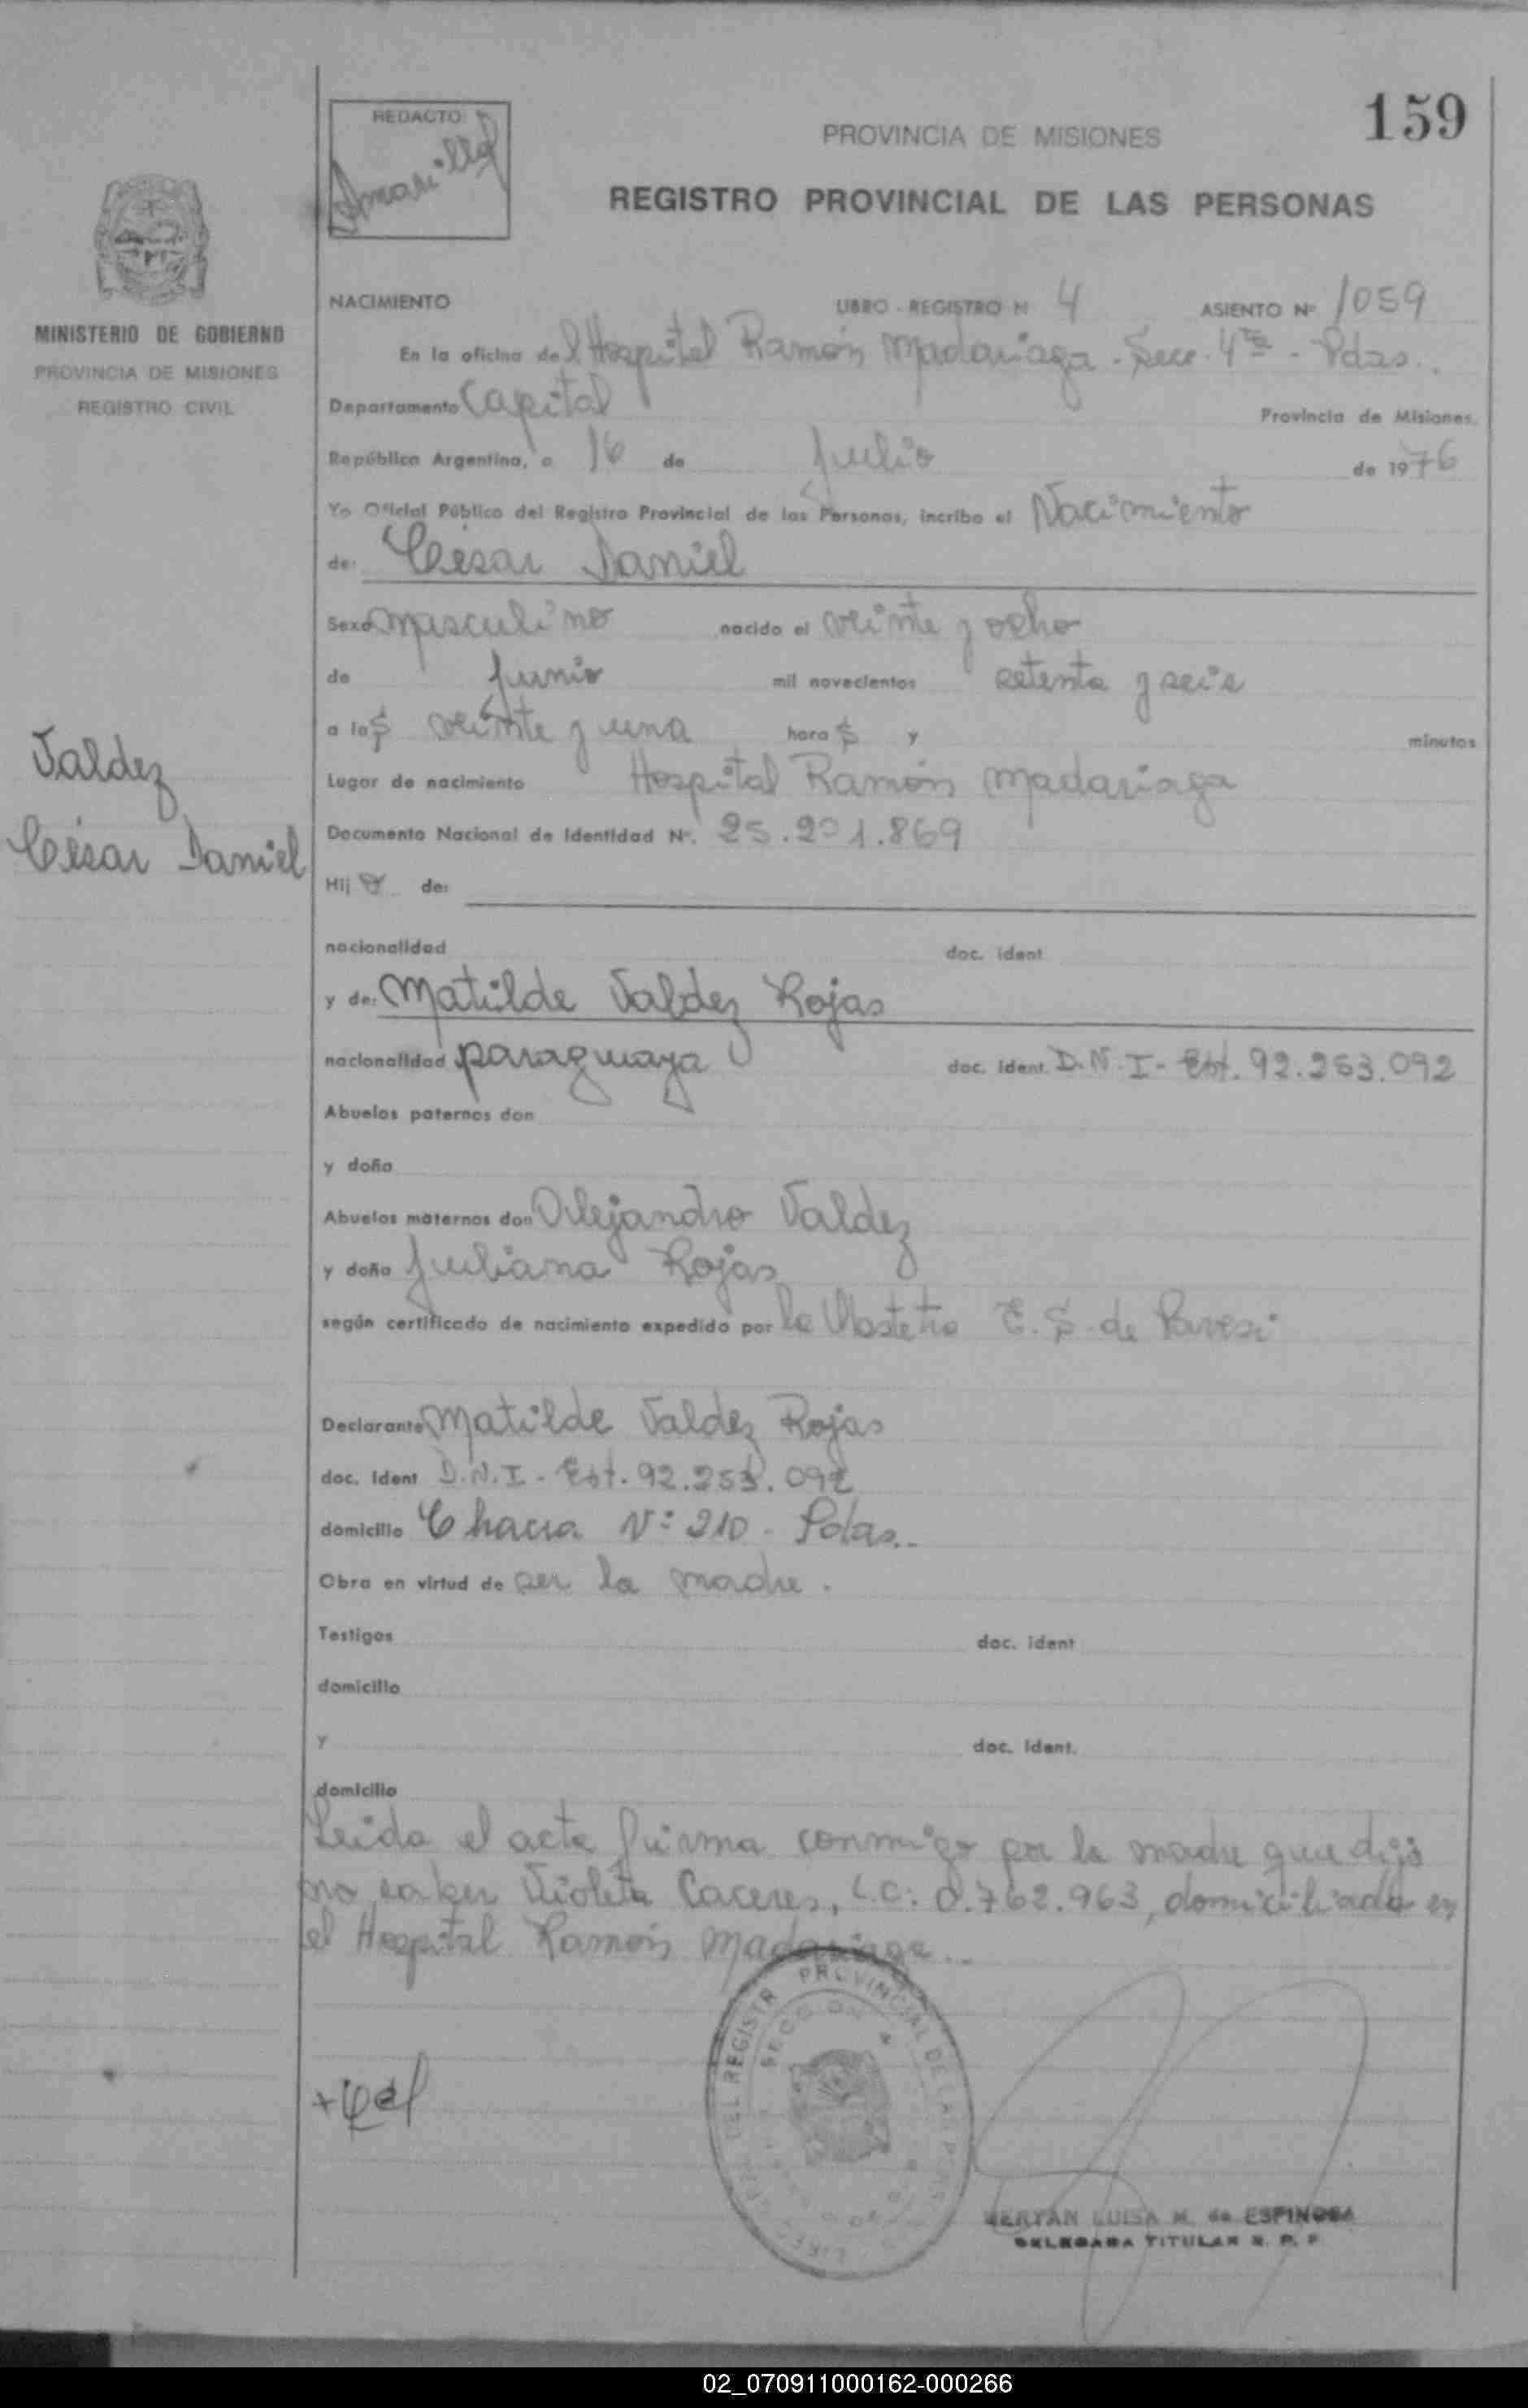 159
REDACTO
Amarilla
PROVINCIA DE MISIONES
REGISTRO PROVINCIAL DE LAS PERSONAS
MINISTERIO DE GOBIERNO
PROVINCIA DE MISIONES
REGISTRO CIVIL
NACIMIENTO LIBRO - REGISTRO N 4 ASIENTO Nº 1059
En la oficina del Hospital Ramón Madariaga - Secc. 4ta - Pdas..
Departamento Capital Provincia de Misiones.
República Argentina, a 16 de Julio de 1976
Yo Oficial Público del Registro Provincial de las Personas, incribo el Nacimiento
de: César Daniel
Sexo masculino nacido el veinte y ocho
de Junio mil novecientos setenta y seis
a las veinte y una horas y minutos
Valdez
César Daniel
Lugar de nacimiento Hospital Ramón Madariaga
Documento Nacional de Identidad Nº. 25.201.869
Hijo de:
nacionalidad doc. ident
y de: Matilde Valdez Rojas
nacionalidad paraguaya doc. ident. D.N.I - Ext. 92.253.092
Abuelos paternos don
y doña
Abuelos maternos don Alejandro Valdez
y doña Juliana Rojas
según certificado de nacimiento expedido por la Obstetra E. S. de Pavesi
Declarante Matilde Valdez Rojas
doc. ident D.N.I - Ext. 92.253.092
domicilio Chacra Nº 210 - Pdas..
Obra en virtud de ser la madre.
Testigos doc. ident
domicilio
y doc. ident.
domicilio
Leida el acta firma conmigo por la madre que dijo
no saber Violeta Caceres, L.C: 0.762.963, domiciliada en
el Hospital Ramón Madariaga..
DEL REGISTR PROVINCIAL DE LAS PERS
SECCION 4
LUISA M. de ESPINOSA
DELEGADA TITULAR R. P. P
02_070911000162-000266